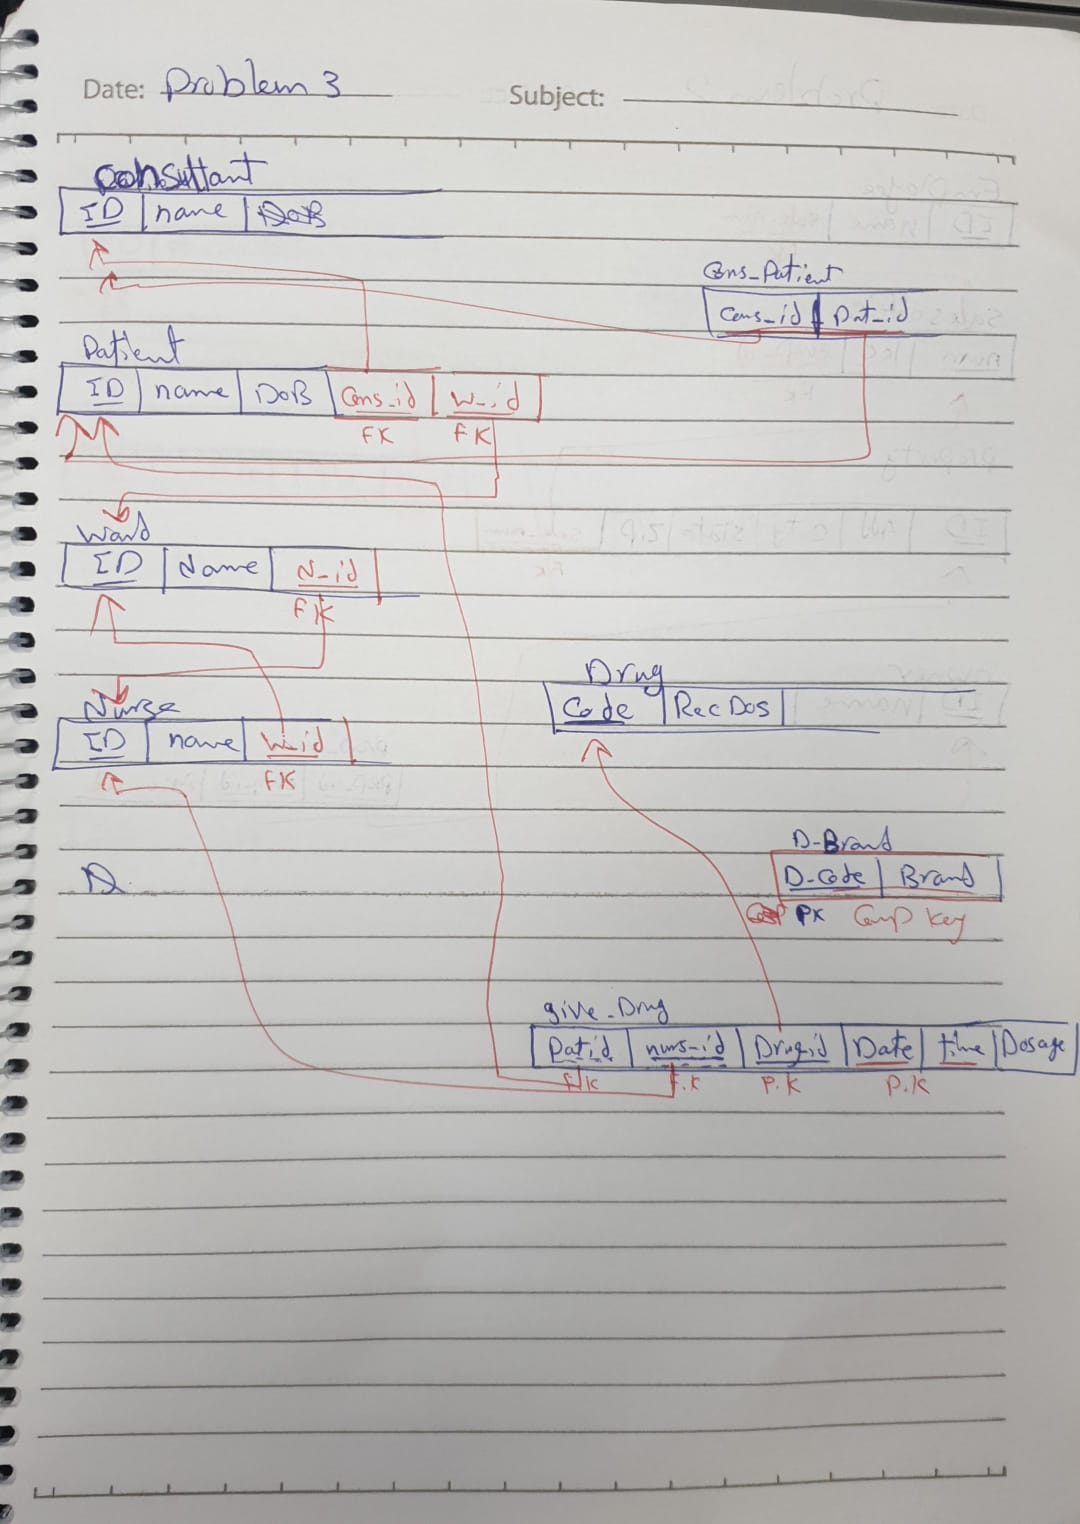 Date: Problem 3
Subject:
Consultant
ID name DoB
Cons_Patient
Cons_id Pat_id
Patient
ID name DoB Cons_id W_id
FK FK
Ward
ID Name N_id
FK
Drug
Code Rec Dos
Nurse
ID name W_id
FK
D-Brand
D-Code Brand
D
Comp PK Comp Key
give_Drug
Pat_id nurs_id Drug_id Date time Dosage
F.K F.K P.K P.K